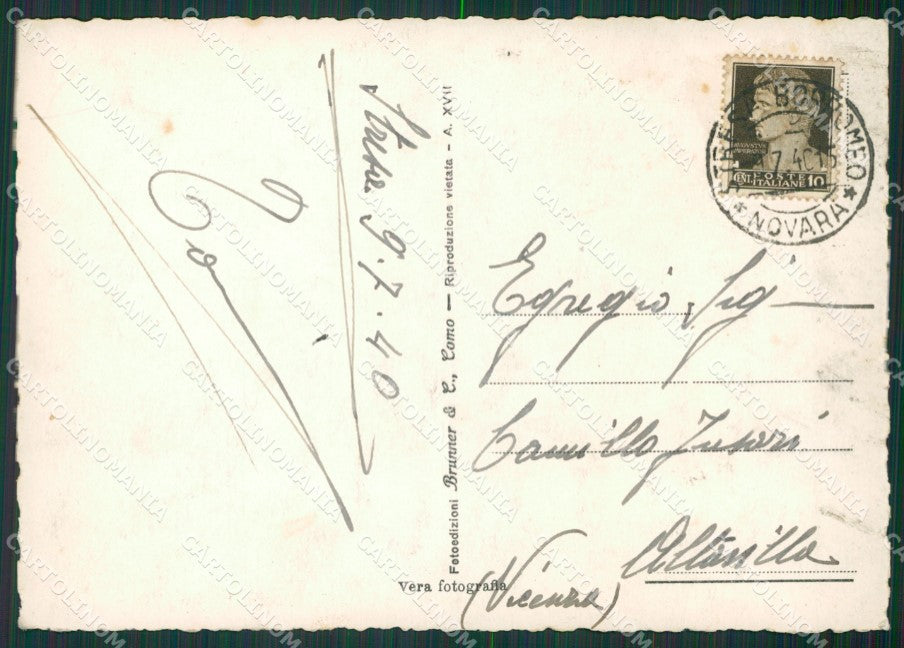 Stresa 9.7.40
Fotoedizioni Brunner & C., Como — Riproduzione vietata - A. XVII
Vera fotografia
BORROMEO
* NOVARA *
7.40
AVGVSTVS
IMPERATOR
CENT. POSTE 10
ITALIANE
Egregio Sig
Camillo
Altavilla
(Vicenza)
CARTOLINOMANIA